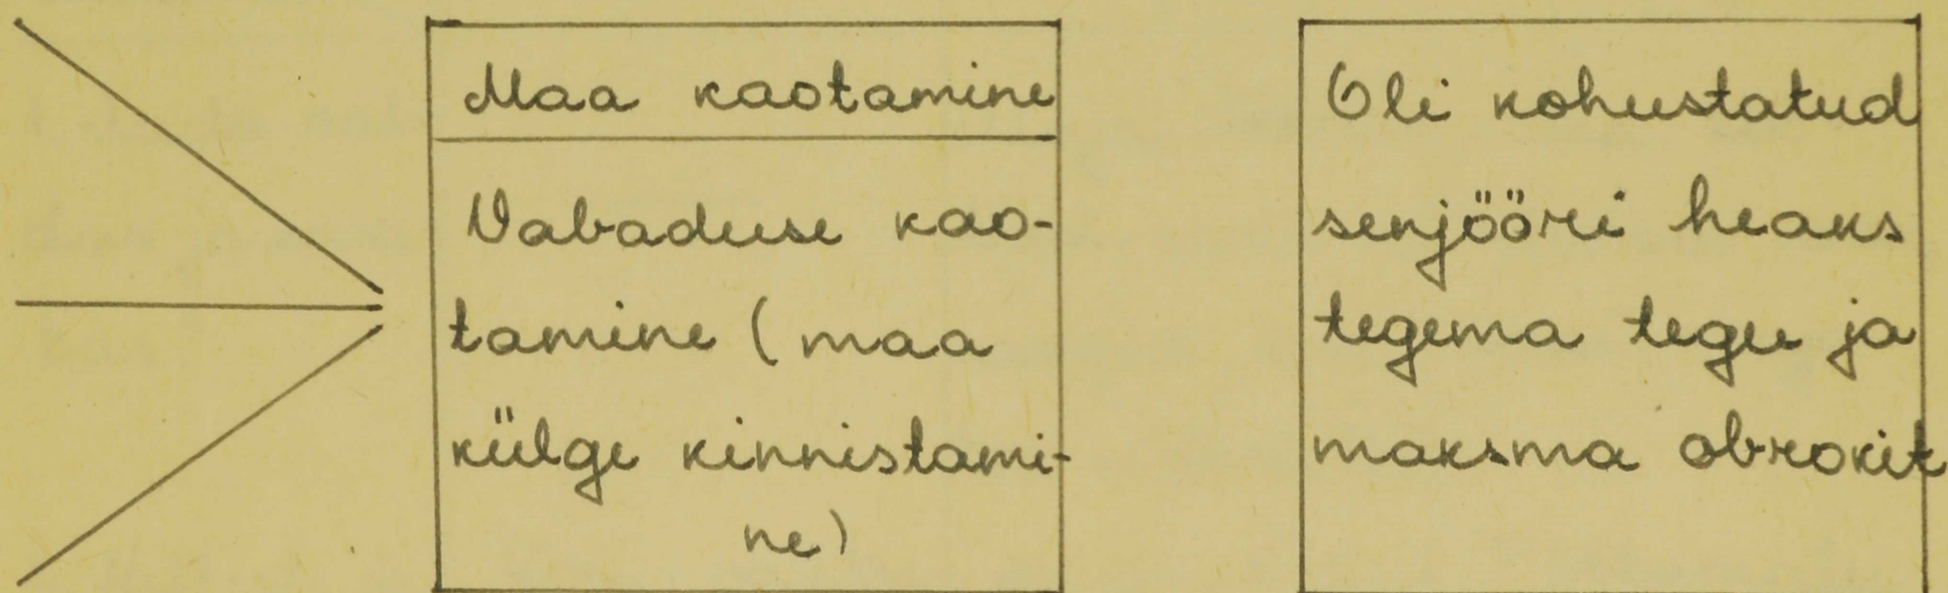 Maa kaotamine
Vabaduse kao-
tamine (maa
külge kinnistami-
ne)
Oli kohustatud
senjööri heaks
tegema tegu ja
maksma obrokit